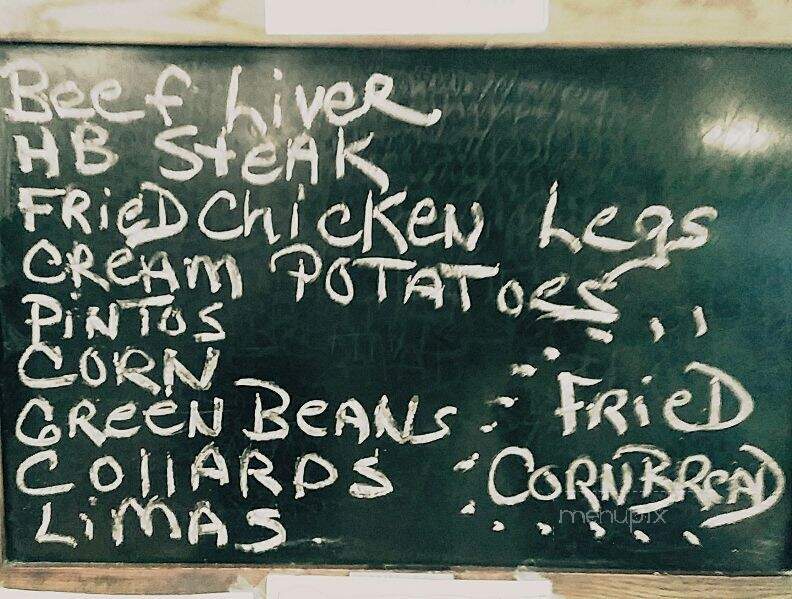 Beef Liver
HB Steak
FRieD Chicken Legs
CReAM POTATOes
PiNTOS
CORN
GReeN BeANS
COllARDS
LiMAS
FRieD
CORNBReAD
menupix